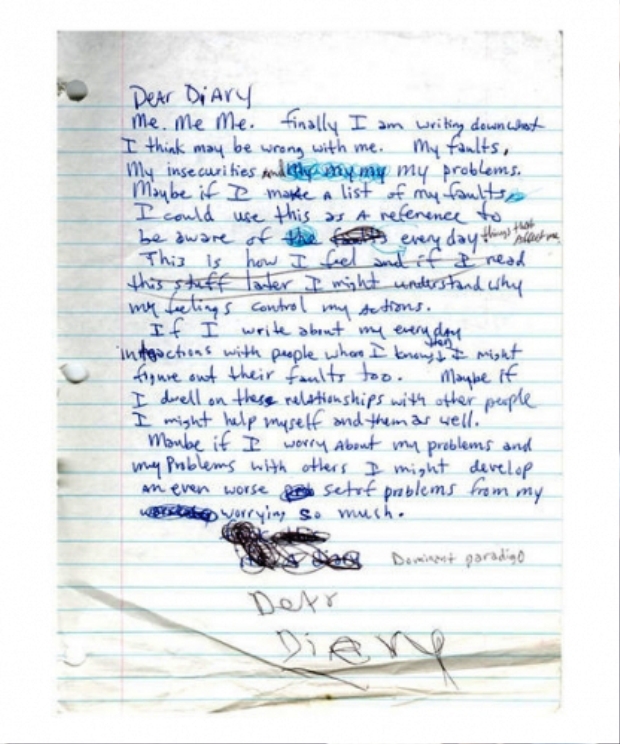 Dear Diary
Me. Me Me. finally I am writing down what
I think may be wrong with me. My faults,
My insecurities and my my my my problems.
Maybe if I make a list of my faults
I could use this as a reference to
be aware of the everyday things that Affect me.
This is how I feel and if I read
this stuff later I might understand why
my feelings control my actions.
If I write about my everyday
interactions with people whom I know then I might
figure out their faults too. Maybe if
I dwell on these relationships with other people
I might help myself and them as well.
Maybe if I worry About my problems and
my Problems with others I might develop
an even worse set of problems from my
worrying so much.
Dominant paradigo
Dear
Diary